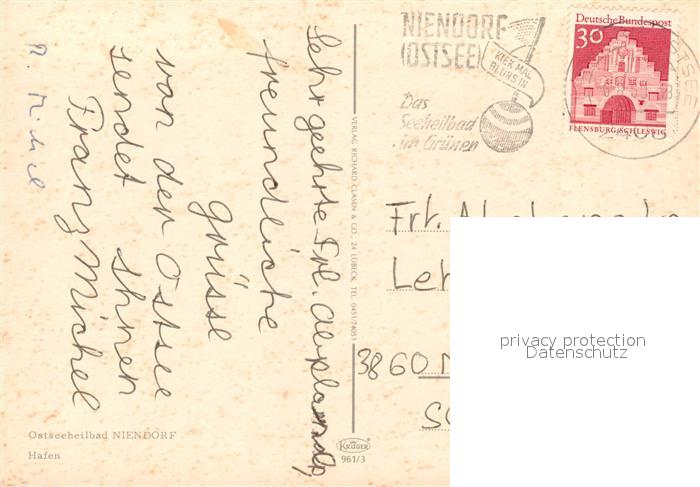 NIENDORF
(OSTSEE)
KIEK MAL
BI UNS IN
Das
Seeheilbad
im Grünen
Deutsche Bundespost
30
FLENSBURG/SCHLESWIG
Sehr geehrte Frl.
freundliche
grüsse
von der Ostsee
sendet Ihnen
Franz Michel
R. Michel
VERLAG RICHARD CLASEN & CO., 24 LÜBECK, TEL. 0451/74051
Frl.
3860
privacy protection
Datenschutz
Ostseeheilbad NIENDORF
Hafen
KRÜGER
961/3